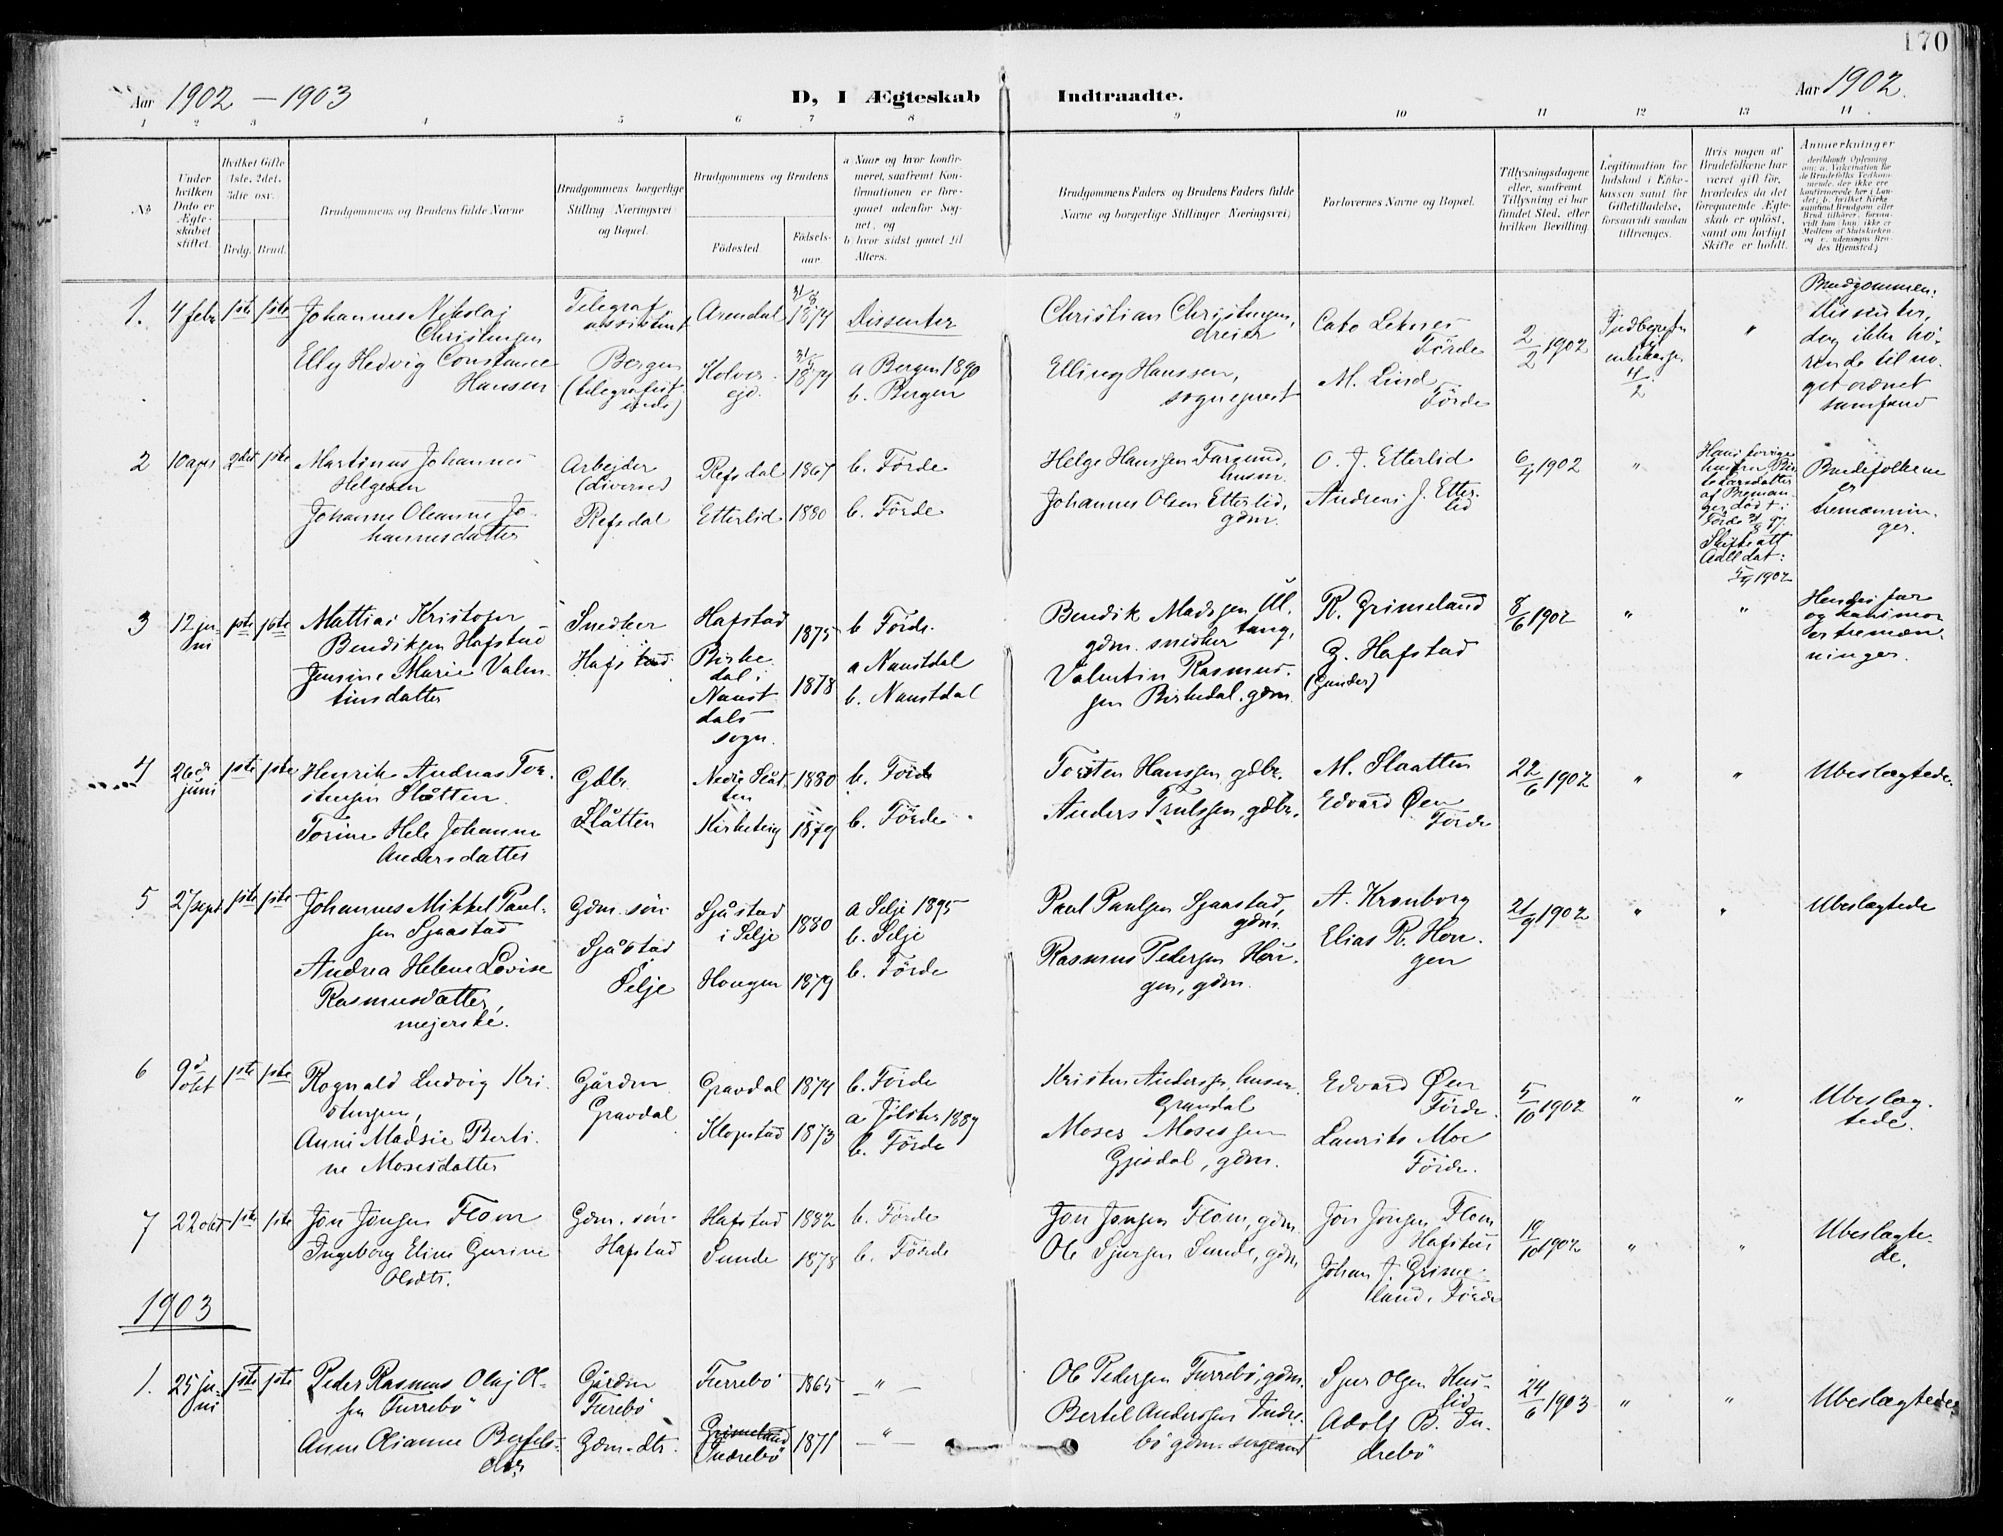 170
Aar 1902 – 1903
D, I Ægteskab Indtraadte.
Aar 1902.
1 2 3 4 5 6 7 8 9 10 11 12 13 14
No
Under hvilken Dato er Ægteskabet stiftet.
Hvilket Gifte 1ste. 2det. 3die osv.
Brdg. Brud.
Brudgommens og Brudens fulde Navne
Brudgommens borgerlige Stilling (Næringsvei) og Bopæl.
Brudgommens og Brudens
Födested. Födselsaar.
a Naar og hvor konfirmeret, saafremt Konfirmationen er foregaaet udenfor Sognet, og
b hvor sidst gaaet til Alters.
Brudgommens Faders og Brudens Faders fulde Navne og borgerlige Stillinger (Næringsvei)
Forlovernes Navne og Bopæl.
Tillysningsdagene eller, saafremt Tillysning ei har fundet Sted, efter hvilken Bevilling.
Legitimation for Indskud i Enkekassen samt for Giftetilladelse, forsaavidt saadan tiltrænges.
Hvis nogen af Brudefolkene har været gift før, hvorledes da det foregaaende Ægteskab er oplöst, samt om lovligt Skifte er holdt.
Anmerkninger
1. 4 febr 1ste 1ste Johannes Nikolaj Christensen
Telegraf assistent Arendal 31/3 1874 Dissenter
Christian Christensen, dreier
Cato Leknes Förde
2/2 1902
"
Brudgommen: dissenter, dog ikke hörende til noget ordnet samfund
Elly Hedvig Constance Hansen
Bergen (telegrafistinde) Kolvereid. 1874 a Bergen 1890
b. Bergen
Elling Hanssen, sogneprest
M. Lind Förde
2 10 apr 2det 1ste Martinus Johannes Helgesen
Arbejder (diverse) Refsdal 1867 b. Förde
Helge Hanssen Farsund, husm.
O. J. Etterlid
6/4 1902
"
Brudefolkene er tremænninger.
Johanne Oleanne Johannesdatter
Refsdal Etterlid 1880 b. Förde
Johannes Olsen Etterlid, gdm.
Andreas J. Etterlid
3 12 juni 1ste 1ste Mattias Kristofer Bendiksen Hafstad
Snedker Hafstad Hafstad 1875 b. Förde.
Bendik Madssen Ul. tang, gdm. snedker
R. Grimeland
8/6 1902
" "
Hendes far og hans mor er tremænninger.
Jensine Marie Valentinsdatter
Birkedal i Naustdals sogn. 1878 a Naustdal
b. Naustdal
Valentin Rasmussen Birkedal. gdm.
G. Hafstad (Gunder)
4 26de juni 1ste 1ste Henrik Andreas Torstensen Slåtten.
Gdbr. Slåtten Nedre Slåtten 1880 b. Förde
Torsten Hanssen gdbr.
M. Slaatten
22/6 1902
" "
Ubeslægtede.
Torine Hele Johanne Andersdatter
Kirketeig 1879 b. Förde.
Anders Trulssen, gdbr.
Edvard Øen Förde
5 27 sept 1ste 1ste Johannes Mikkel Paulsen Sjaastad
Gdm. sön Sjåstad Selje Sjåstad i Selje 1880 a Selje 1895
b. Selje
Paul Paulsen Sjaastad, gdm.
A. Kronborg
21/9 1902
" "
Ubeslægtede
Andrea Helene Lovise Rasmusdatter, mejerske.
Hougen 1879 b. Förde
Rasmus Pedersen Hougen, gdm.
Elias R. Hougen
6 9de okt 1ste 1ste Rognald Ludvig Kristensen,
Gårdm Gravdal Gravdal 1874 b. Förde
Kristen Anderssen, husm. Gravdal
Edvard Øen Förde.
5/10 1902
" "
Ubeslægtede.
Anne Madsie Bertine Mosesdatter
Klopstad 1873 a Jölster 1889
b. Förde
Moses Mosessen Gjesdal, gdm.
Laurits Moe Förde.
7 22 okt 1ste 1ste Jon Jonsen Flom
Gdm. sön Hafstad Hafstad 1882 b. Förde
Jon Jonsen Flom, gdm.
Jon Jonsen Flom Hafstad
19/10 1902
" "
Ubeslægtede.
Ingeborg Eline Gurine Olsdtr.
Sunde 1878 b. Förde
Ole Sjursen Sunde, gdm.
Johan J. Grimeland. Förde
1903
1. 25 juni 1ste 1ste Peder Rasmus Olaj Olsen Furrebö
Gårdm Furebö Furrebö 1865 –"–
Ole Pedersen Furrebö, gdm.
Sjur Olsen Huslid
24/6 1903
" "
Ubeslægtede
Anne Olianne Bertelsdtr
Gdm-dtr. Grimeland Indrebö 1871 –"–
Bertel Anderssen Indrebö gdm. sergeant
Adolf B. Indrebö